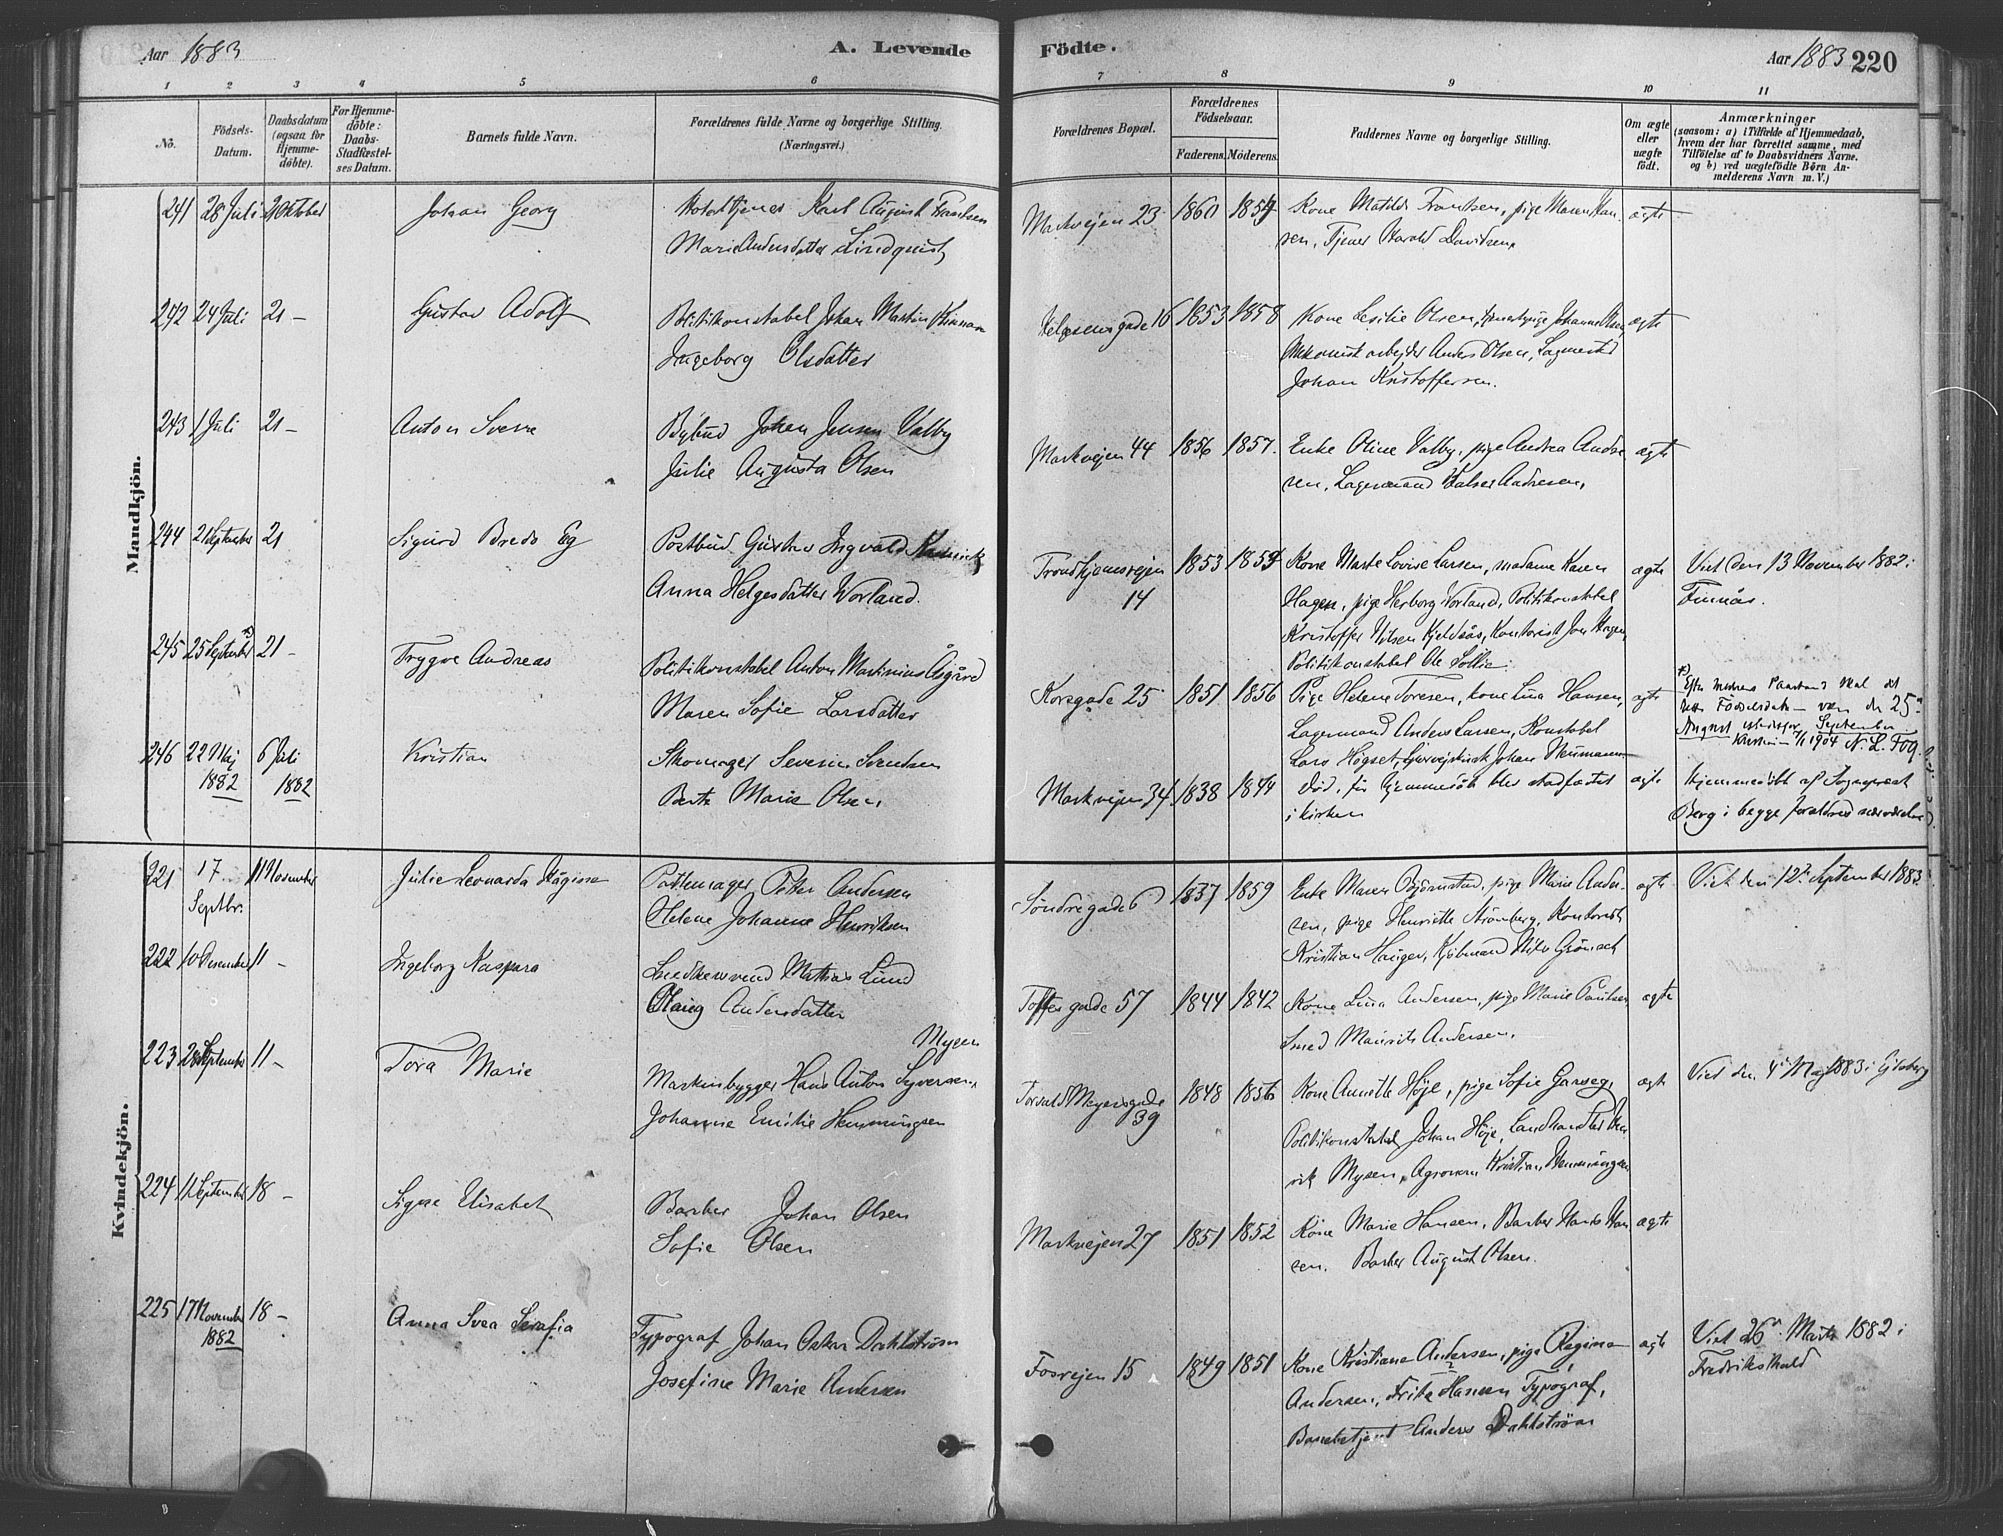 Aar 1883
A. Levende
Födte.
Aar 1883
220
1 2 3 4 5 6 7 8 9 10 11
No.
Födsels-Datum.
Daabsdatum (ogsaa for Hjemme-döbte).
For Hjemme-döbte: Daabs-Stadfæstel-ses Datum.
Barnets fulde Navn.
Forældrenes fulde Navne og borgerlige Stilling. (Næringsvei.)
Forældrenes Bopæl.
Forældrenes Födselsaar.
Faderens. Möderens.
Faddernes Navne og borgerlige Stilling.
Om ægte eller uægte födt.
Anmærkninger
(saasom: a) i Tilfælde af Hjemmedaab, hvem der har forrettet samme, med Tilföielse af to Daabsvidners Navne. og b) ved uægtefödte Börn An-melderens Navn m. V.)
Mandkjön.
241 28 Juli 21 Oktober Johan Georg
Hoteltjener Karl August Frantsen
Marie Andersdatter Lindquist
Markvejen 23 1860 1854
Kone Matilde Frantsen, pige Maren Han-
sen, Tjener Harald Davidsen
ægte
242 24 Juli 21 – Gustav Adolf
Politikonstabel Johan Martin
Ingeborg Olsdatter
Helgesensgade 16 1853 1858
Kone Olsen, pige Johanne Olsen,
Mekanisk arbejder Anders Olsen, Lagmested
Johan Kristoffersen.
ægte
243 1 Juli 21 – Anton Sverre
Bybud Johan Jensen Valby
Julie Augusta Olsen
Markvejen 44 1856 1857.
Enke Oline Valby, pige Andrea Andre
sen, Lagermand Andresen,
ægte
244 21 September 21 Sigurd Bredo Eg
Postbud Gustav Ingvald
Anna Helgesdatter Vorland.
Trondhjemsvejen
14
1853 1859
Kone Marte Lovise Larsen, madame Karen
Hagen, pige Herborg Vorland, Politikonstabel
Kristoffer Nilsen Kjeldsås, Kontorist Hagen,
Politikonstabel Ole Sollie.
ægte
Viet den 13 November 1882 i
Finnås.
245 25 September *) 21 – Trygve Andreas
Politikonstabel Anton Martinius Åsgård
Maren Sofie Larsdatter
Korsgade 25 1851 1856
Pige Helene Toresen, kone Lina Hansen,
Lagermand Anders Larsen, Konstabel
Lars Högset, Johan Neumann
ægte
*) Efter moders Paastand skal det
rette Födselsdato være den 25
August istedetfor September
1904 N. L. Fog.
246 22 Maj
1882
6 Juli
1882
Kristian
Skomager Severin Svendsen
Berte Marie Olsen,
Markvejen 34 1838 1844
död, för Hjemmedåb blev stadfæstet
i kirken
ægte
Hjemmedöbt af Sogneprest
Berg i begge forældres nærværelse
Kvindekjön.
221 17
Septbr.
11 November Julie Leonarda
Pottemager Peter Andersen
Helene Johanne Henriksen
Söndregade 6 1837 1859
Enke Maren Björnstad, pige Marie Ander-
sen, pige Henriette Strömberg, Kontorist
Kristian Hauger, Kjöbmand
ægte
Viet den 12 September 1883
222 10 Desember 11 – Ingeborg Kaspara
Snedkersvend Mattias Lund
Andersdatter
Toftesgade 57 1844 1842
Kone Lina Andersen, pige Marie Paulsen
Smed Maurits Andersen,
ægte
223 28 September 11 – Tora Marie
Mysen
Maskinbygger Hans Anton Syversen,
Johanne Emilie Hemmingsen
Torvald Meyersgade
39
1848 1856
Kone Annette Höje, pige Sofie
Politikonstabel Johan Höje, Landhandler Hen
rik Mysen, Agronom Kristian Hemmingsen
ægte
Viet den 4 Maj 1883 i
224 11 September 18 – Signe Elisabet
Barber Johan Olsen
Sofie Olsen
Markvejen 27 1851 1852
Kone Marie Hansen, Barber Hans Han
sen. Barber August Olsen.
ægte
225 17 November
1882
18 – Anna Svea Serafia
Typograf Johan Oskar Dahlström
Josefine Marie Andersen
Fosvejen 15 1849 1851
Kone Kristiane Andersen, pige Regine
Andersen, Fritz Hansen Typograf,
Anders Dahlström
ægte
Viet 26 Marts 1882 i
Fredrikshald